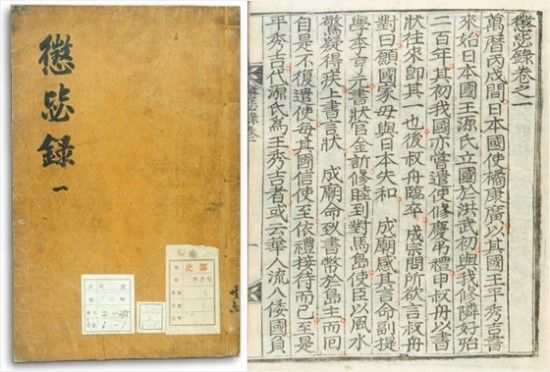 懲毖錄 一
史部
懲毖錄卷之一
萬曆丙戌間日本國使橘康廣以其國王平秀吉書
來始日本國王源氏立國於洪武初與我修隣好殆
二百年其初我國亦嘗遣使修慶弔禮申叔舟以書
狀往來即其一也後叔舟臨卒 成宗問所欲言叔舟
對曰願國家毋與日本失和 成廟感其言命副提
學李亨元書狀官金訢修睦到對馬島使臣以風水
驚疑得疾上書言狀 成廟命致書幣於島主而回
自是不復遣使每其國信使至依禮接待而已至是
平秀吉代源氏爲王秀吉者或云華人流入倭國負